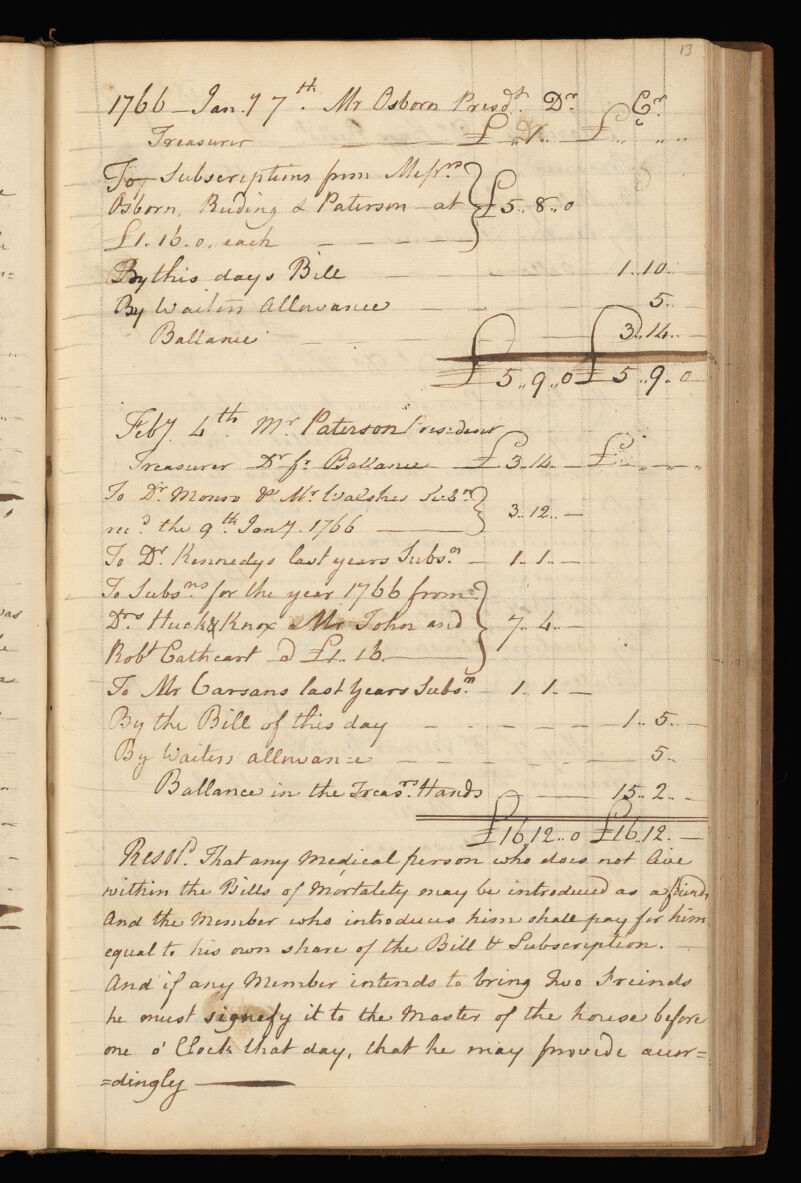 13
1766 – Jan.y 7th. Mr Osborn Presdt. Dr. Cr.
Treasurer — £ „ 1 „ — £ „ „ „
To Subscriptions from Messrs.
Osborn, Ruding & Paterson – at £5 „ 8 „ 0
£1. 16. 0. each – – – –
By this days Bill — 1 „ 10 „ –
By Waiters Allowance — 5 „ –
Ballance — 3 „ 14 „ –
£ 5 „ 9 „ 0 £ 5 „ 9 „ 0
Feby. 4th. Mr. Paterson President
Treasurer Dr. fr. Ballance — £3 „ 14 „ – £ „ „ „
To Dr. Monro & Mr. Walshes Subn.
recd. the 9th. Jany. 1766 — 3 „ 12 „ –
To Dr. Kennedys last years Subsn. – 1 „ 1 „ –
To Subsns. for the year 1766 from
Drs. Huck & Knox Mr John and 7 „ 4 „ –
Robt Cathcart @ £1 „ 16. —
To Mr Carsans last years Subsn. – 1 „ 1 „ –
By the Bill of this day – – – – 1 „ 5 „ –
By Waiters allowance – – – – 5 „ –
Ballance in the Treasrs. Hands — 15 „ 2 „ –
£16 „ 12 „ 0 £16 „ 12 „ –
Resold. That any Medical person who does not live
within the Bills of Mortality may be introduced as a friend,
And the Member who introduces him shall pay for him
equal to his own share of the Bill & Subscription. –
And if any Member intends to bring two Freinds
he must signefy it to the Master of the house before
one o' Clock that day, that he may provide accor=
=dingly —